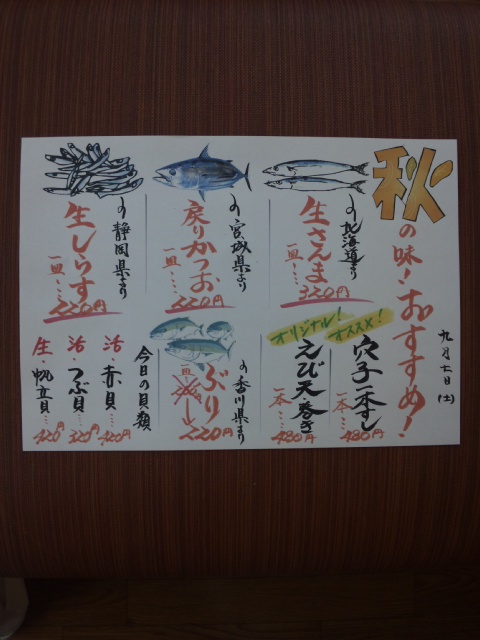 秋の味!おすすめ!
九月七日(土)
北海道より
生さんま
一皿…320円
宮城県より
戻りかつお
一皿…220円
静岡県より
生しらす
一皿…220円
オススメ!
穴子一本すし
一本…480円
オリジナル!
えび天巻き
一本…480円
香川県より
ぶり
一皿
220円
今日の貝類
活・赤貝…420円
活・つぶ貝…320円
生・帆立貝…420円